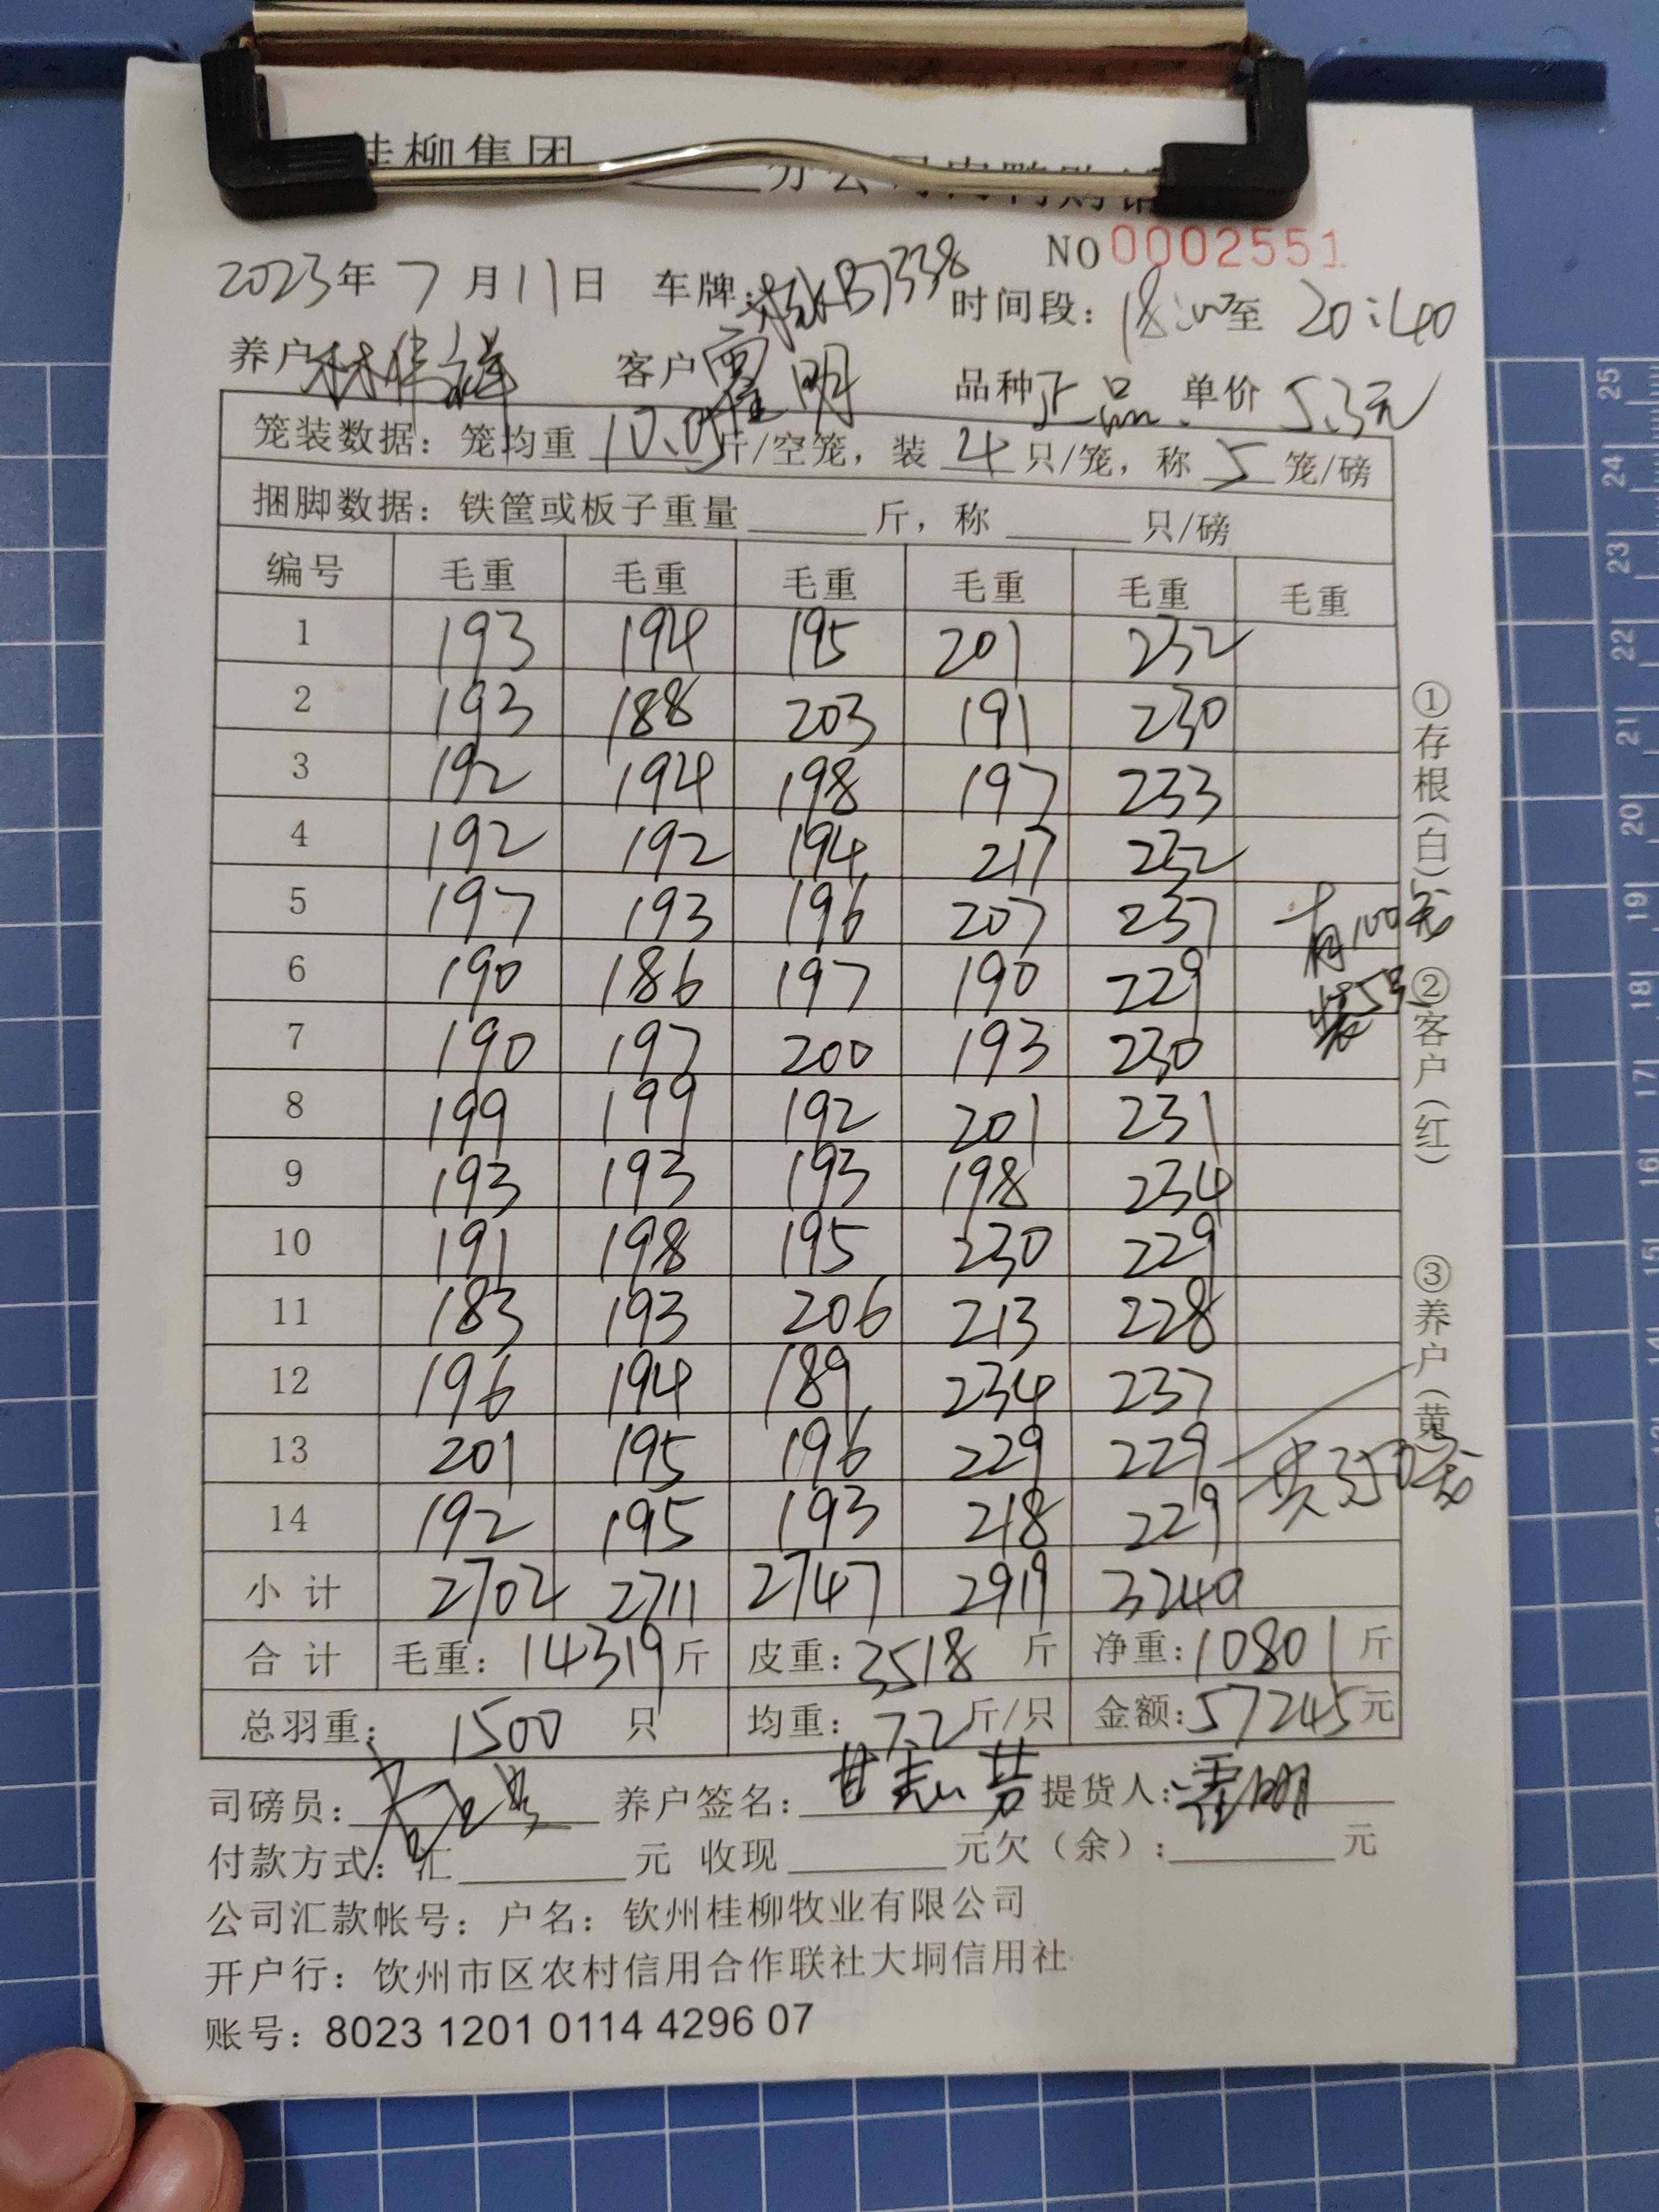 桂柳集团 分公司肉鸭购销
NO 0002551
2023年 7 月 11 日 车牌: B7338 时间段: 18:00 至 20:40
养户 林伟祥 客户 覃明 品种 正品 单价 5.3元
笼装数据: 笼均重 10.05 斤/空笼, 装 4 只/笼, 称 5 笼/磅
捆脚数据: 铁筐或板子重量 斤, 称 只/磅
编号 毛重 毛重 毛重 毛重 毛重 毛重
1 193 194 195 201 232
2 193 188 203 191 230
3 192 194 198 197 233
4 192 192 194 217 232
5 197 193 196 207 237
6 190 186 197 190 229
7 190 197 200 193 230
8 199 199 192 201 231
9 193 193 193 198 234
10 191 198 195 230 229
11 183 193 206 213 228
12 196 194 189 234 237
13 201 195 196 229 229
14 192 195 193 218 229
小计 2702 2711 2747 2919 3240
合计 毛重: 14319 斤 皮重: 3518 斤 净重: 10801 斤
总羽重: 1500 只 均重: 7.2 斤/只 金额: 57245 元
司磅员: 养户签名: 提货人: 覃明
付款方式: 汇 元 收现 元欠(余): 元
公司汇款帐号: 户名: 钦州桂柳牧业有限公司
开户行: 钦州市区农村信用合作联社大垌信用社
账号: 8023 1201 0114 4296 07
①存根(白) ②客户(红) ③养户(黄
有100
装5只
共350
25
24
23
22
21
20
19
18
17
16
15
14